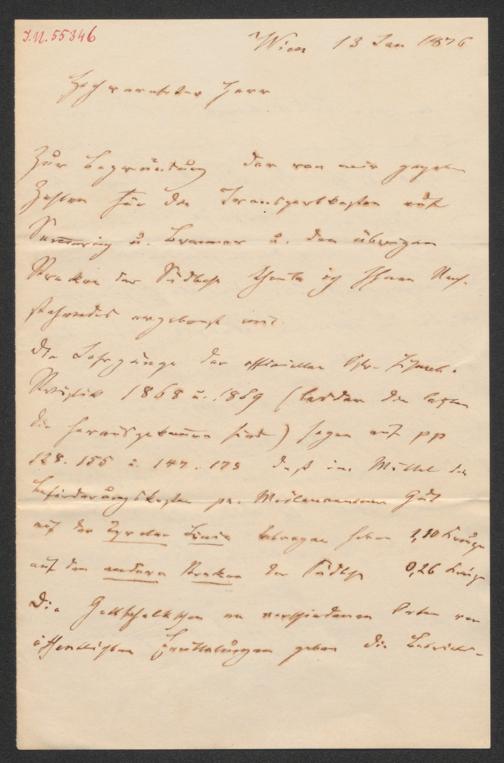 I.N. 55346
Wien 13 Jan 1876
Hochverehrter Herr
Zur Begründung der von mir gegeben
Zahlen für die Transportkosten auf
Semmering u. Brenner u. den übrigen
Strecken der Südbahn theile ich Ihnen Nach-
stehendes ergebenst mit.
Die Jahrgänge der officiellen Eisenb.
Statistik 1868 u. 1869 (leider die letzten
die herausgekommen sind) sagen auf pp
128. 155 u. 147. 173 daß im Mittel die
Beförderungskosten pr. Meilencentner Gut
auf der Tyroler Linie betragen haben 1,10 Kreuzer
auf den anderen Strecken der Südbahn 0,26 Kreuz
Die an verschiedenen Orten von
öffentlichten geben die Betriebs-